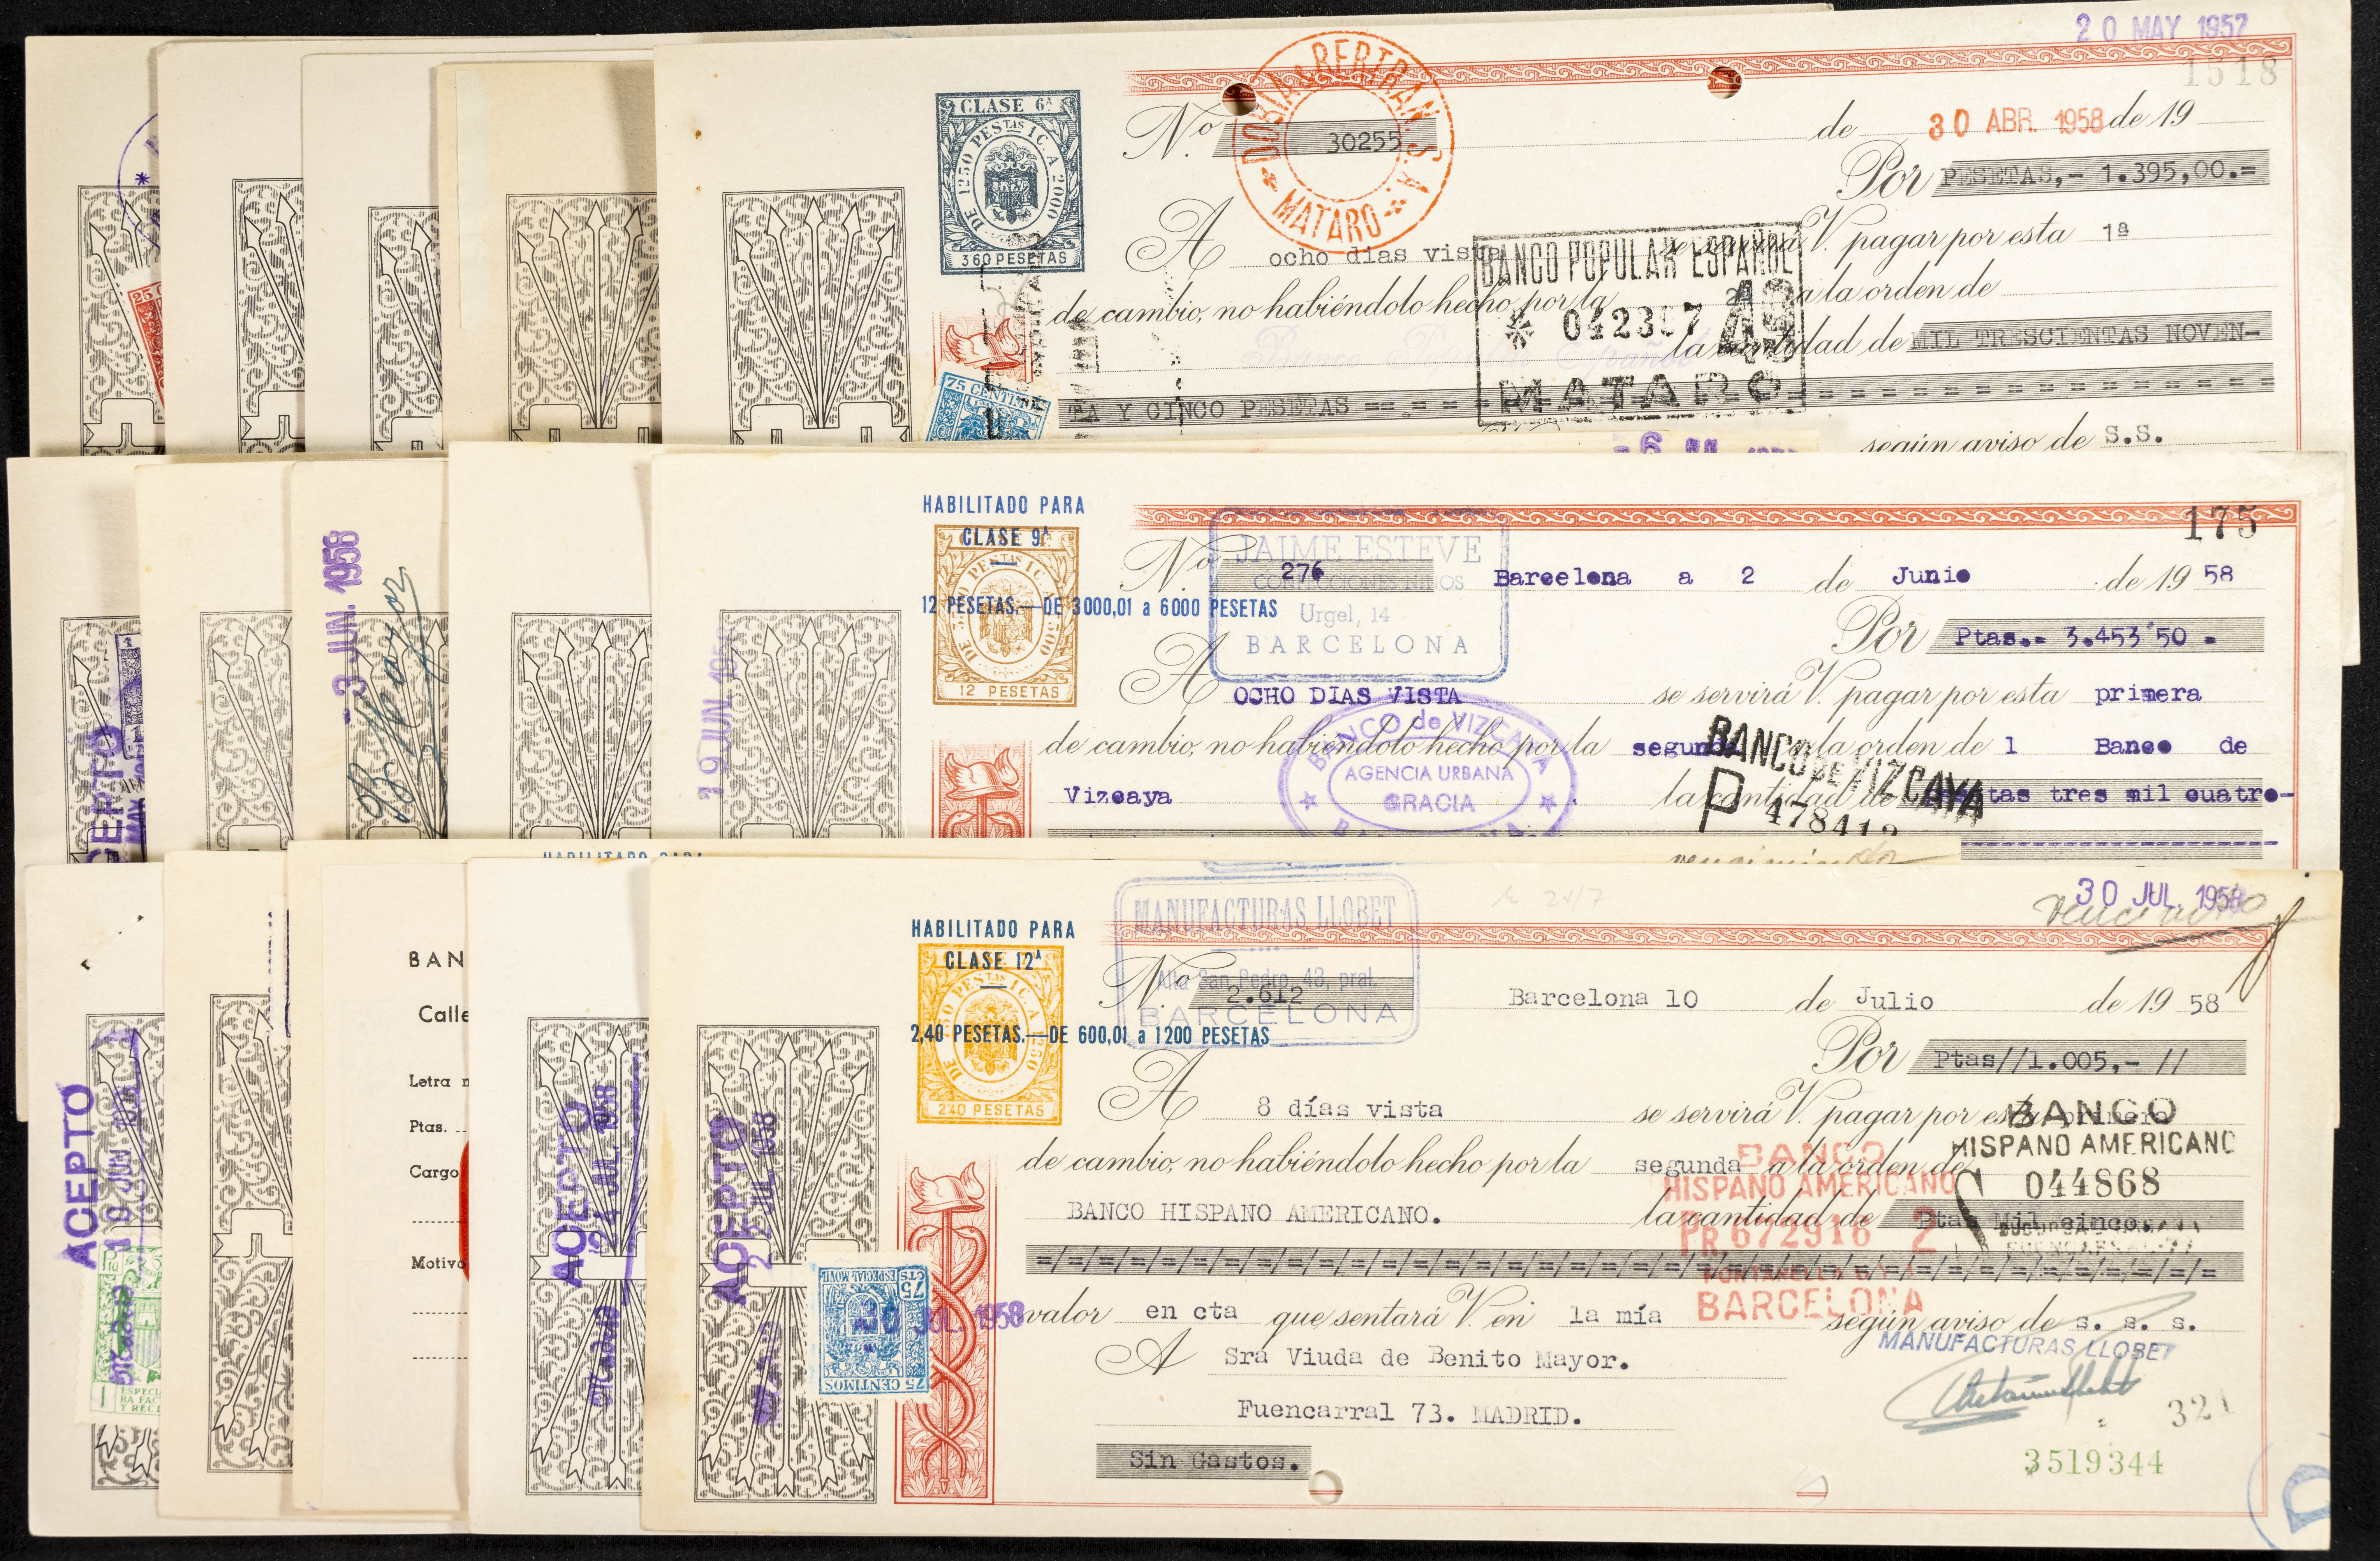 20 MAY 1957
1518
CLASE 6ª
DE 1250 PESTAS 1 C. A 2000
360 PESETAS
DORIA & BERTRAN S.A.
MATARO
Nº 30255
de 30 ABR. 1958 de 19
Por PESETAS,- 1.395,00.=
A ocho dias vista se servirá V. pagar por esta 1ª
BANCO POPULAR ESPAÑOL
de cambio, no habiéndolo hecho por la 2ª a la orden de
Banco Popular Español
la cantidad de MIL TRESCIENTAS NOVEN-
MATARO
75 CENTIMOS
TA Y CINCO PESETAS = = = = = = = = = = = = = = = = = =
según aviso de S.S.
25
HABILITADO PARA
CLASE 9ª
12 PESETAS.—DE 3000,01 a 6000 PESETAS
12 PESETAS
175
JAIME ESTEVE
CONFECCIONES NIÑOS
Urgel, 14
BARCELONA
Nº 276 Barcelona a 2 de Junio de 19 58
Por Ptas.- 3.453'50 -
A OCHO DIAS VISTA se servirá V. pagar por esta primera
de cambio, no habiéndolo hecho por la segunda a la orden de l Banco de
Vizcaya la cantidad de tas tres mil cuatro-
BANCO de VIZCAYA
AGENCIA URBANA
GRACIA
BANCO DE VIZCAYA
P 478412
3 JUN. 1958
19 JUN. 195
HABILITADO PARA
vencimiento
HABILITADO PARA
CLASE 12ª
2,40 PESETAS.—DE 600,01 a 1200 PESETAS
240 PESETAS
MANUFACTURAS LLOBET
Alta San Pedro, 43, pral.
BARCELONA
30 JUL. 1958
Nº 2.612 Barcelona 10 de Julio de 19 58
Por Ptas//1.005,- //
A 8 días vista se servirá V. pagar por esta primera
BANCO
HISPANO AMERICANO
044868
de cambio, no habiéndolo hecho por la segunda a la orden de
BANCO
HISPANO AMERICANO
PR, 672916 2
BARCELONA
BANCO HISPANO AMERICANO. la cantidad de Ptas Mil cinco.
=/=/=/=/=/=/=/=/=/=/=/=/=/=/=/=/=/=/=/=/=/=
valor en cta que sentará V. en la mía según aviso de s. s. s.
MANUFACTURAS LLOBET
A Sra Viuda de Benito Mayor.
Fuencarral 73. MADRID.
Sin Gastos.
321
3519344
75 CTS ESPECIAL MOVIL
75 CENTIMOS
30 JUL. 1958
ACEPTO
2 JUL. 1958
ACEPTO
24 JUL. 1958
MADRID
ACEPTO
19 JUN
BAN
Calle
Letra n
Ptas.
Cargo
Motivo